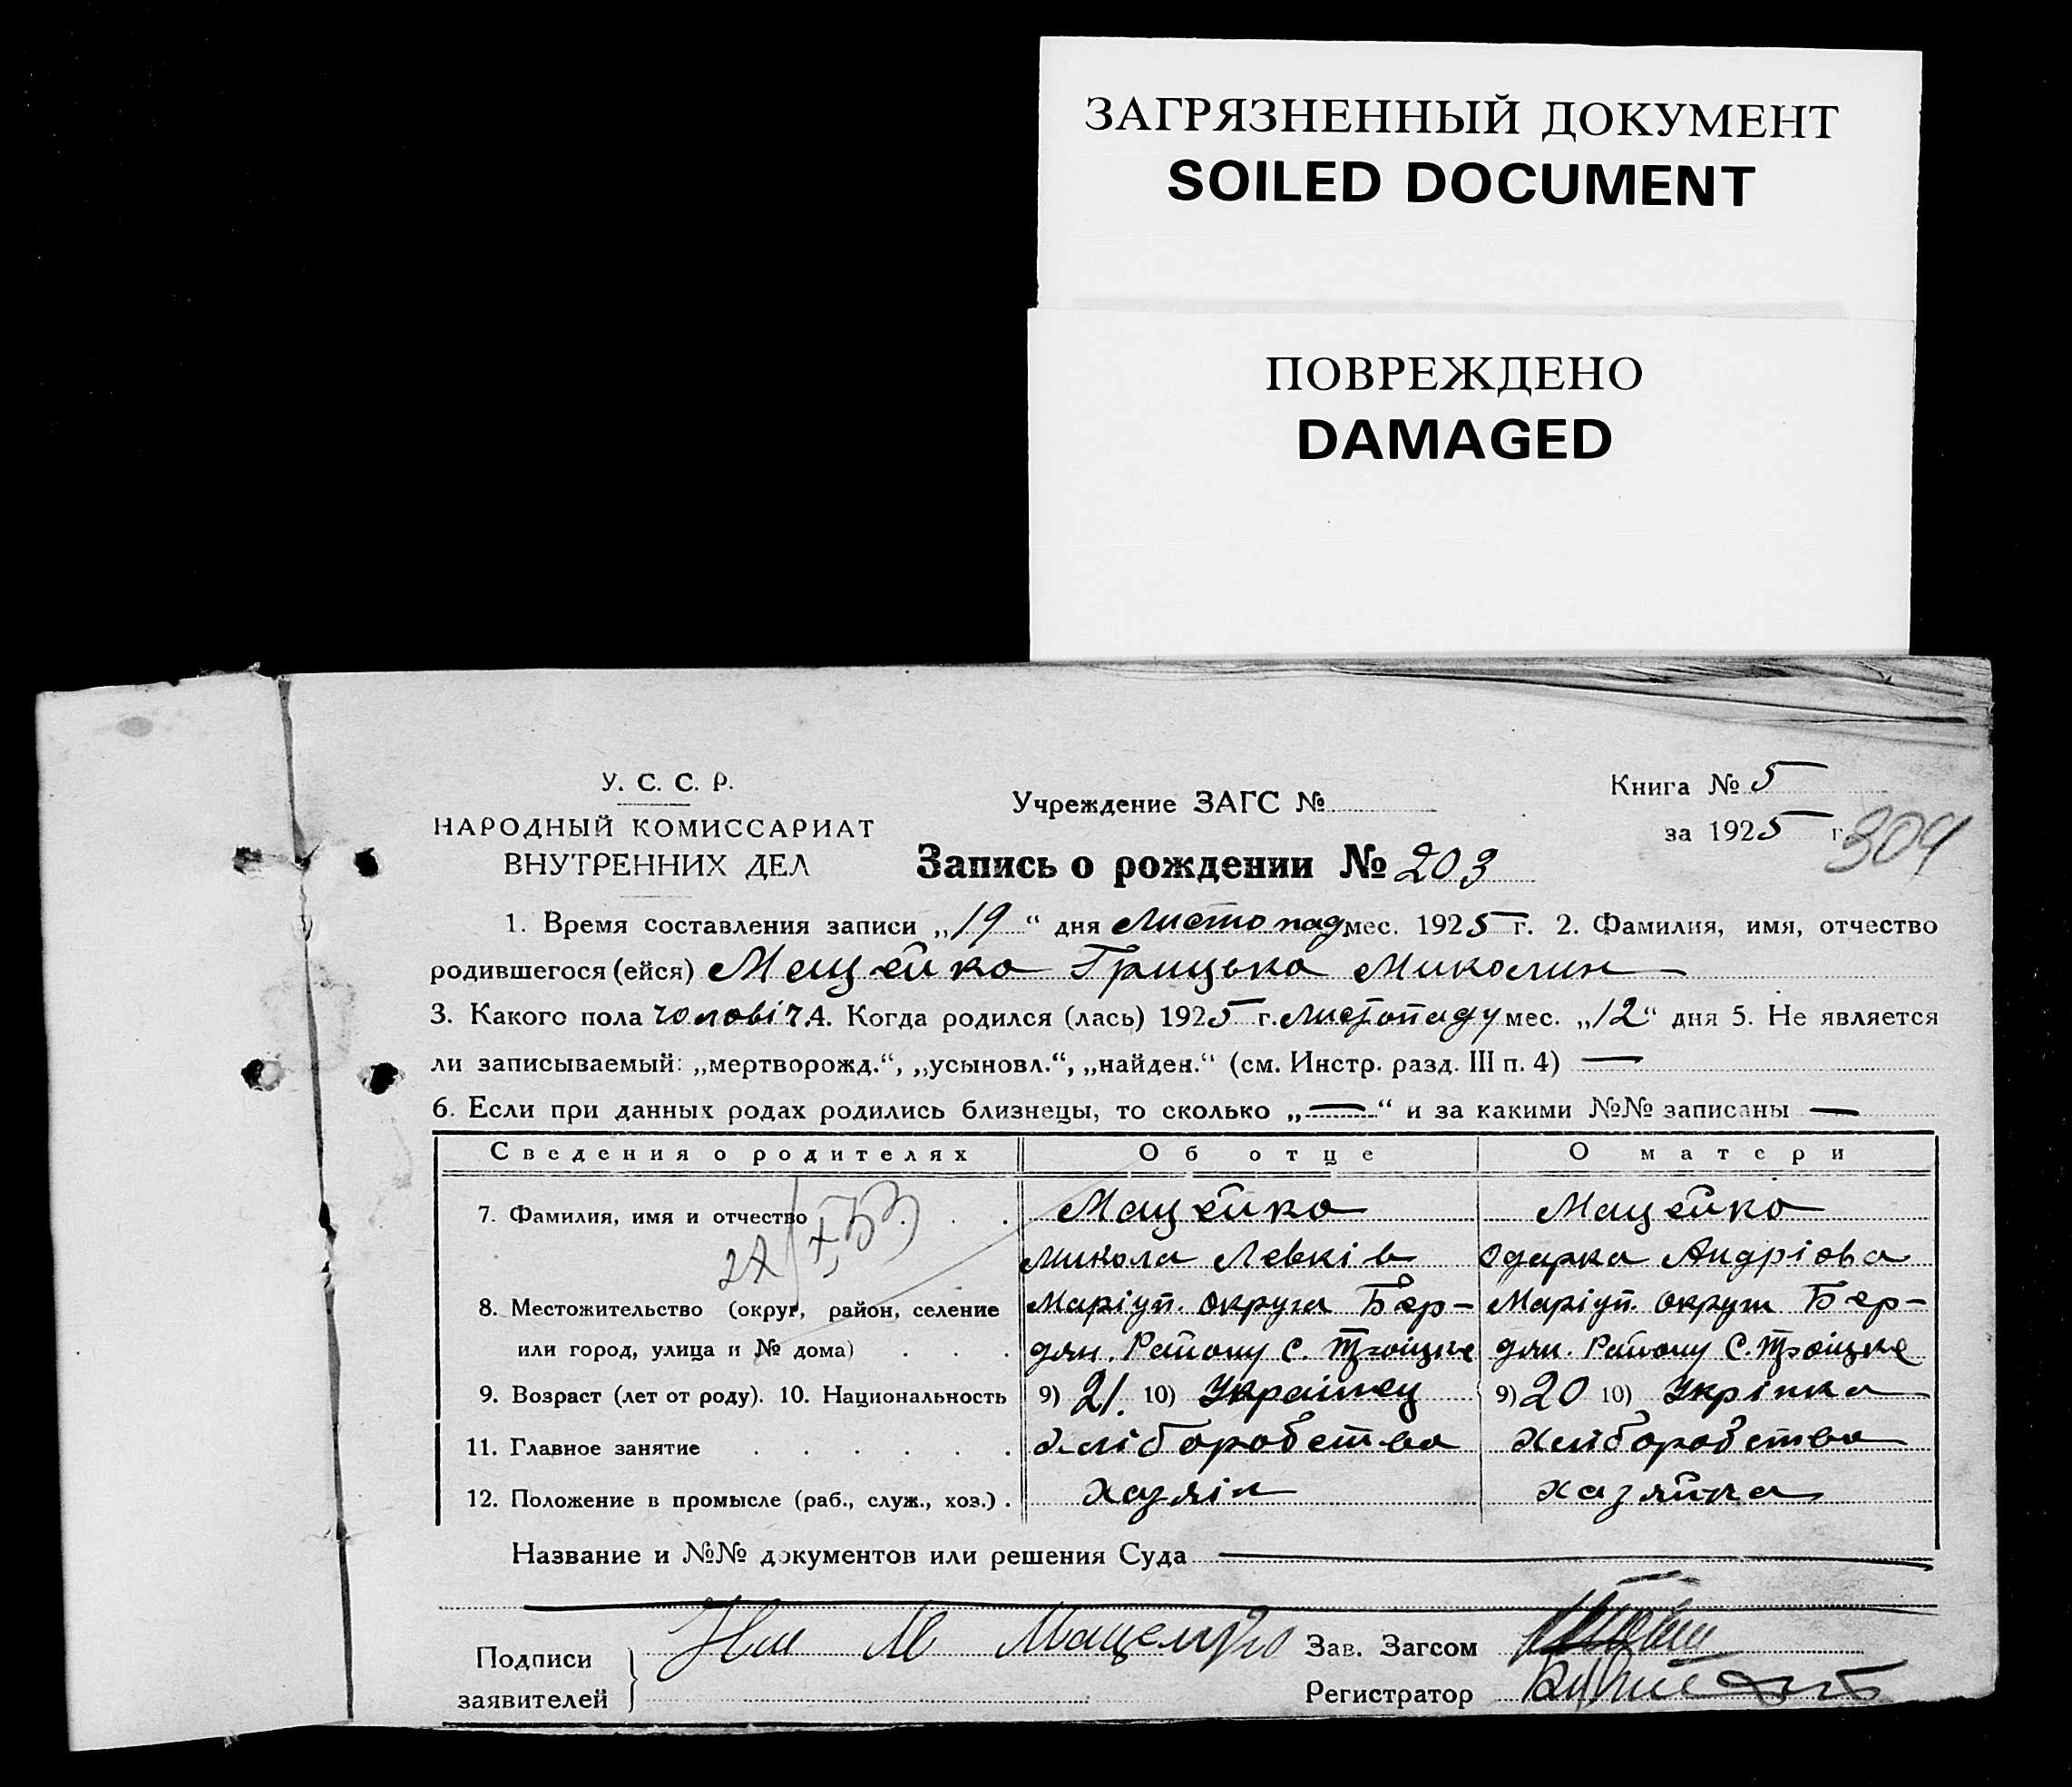 ЗАГРЯЗНЕННЫЙ ДОКУМЕНТ
SOILED DOCUMENT
ПОВРЕЖДЕНО
DAMAGED
У. С. С. Р.
НАРОДНЫЙ КОМИССАРИАТ
ВНУТРЕННИХ ДЕЛ
Учреждение ЗАГС №
Книга № 5
за 1925 г.
304
Запись о рождении № 203
1. Время составления записи „19“ дня Листопад мес. 1925 г. 2. Фамилия, имя, отчество
родившегося (ейся) Мацейко Грицька Миколин
3. Какого пола чоловіч. 4. Когда родился (лась) 1925 г. Листопаду мес. „12“ дня 5. Не является
ли записываемый: „мертворожд.“, „усыновл.“, „найден.“ (см. Инстр. разд. III п. 4) —
6. Если при данных родах родились близнецы, то сколько „—“ и за какими №№ записаны —
Сведения о родителях Об отце О матери
7. Фамилия, имя и отчество . . . Мацейко Мацейко
Микола Левків Одарка Андріова
8. Местожительство (округ, район, селение Маріуп. округа Бер- Маріуп. округи Бер-
или город, улица и № дома) . . . дян. Району С. Троїцке дян. Району С. Троїцке
9. Возраст (лет от роду). 10. Национальность 9) 21. 10) Українец 9) 20 10) Укрінка
11. Главное занятие . . . . . . Хліборобства Хліборобства
12. Положение в промысле (раб., служ., хоз.) . Хазяін хазяйка
Название и №№ документов или решения Суда —
Подписи
заявителей
Зав. Загсом
Регистратор